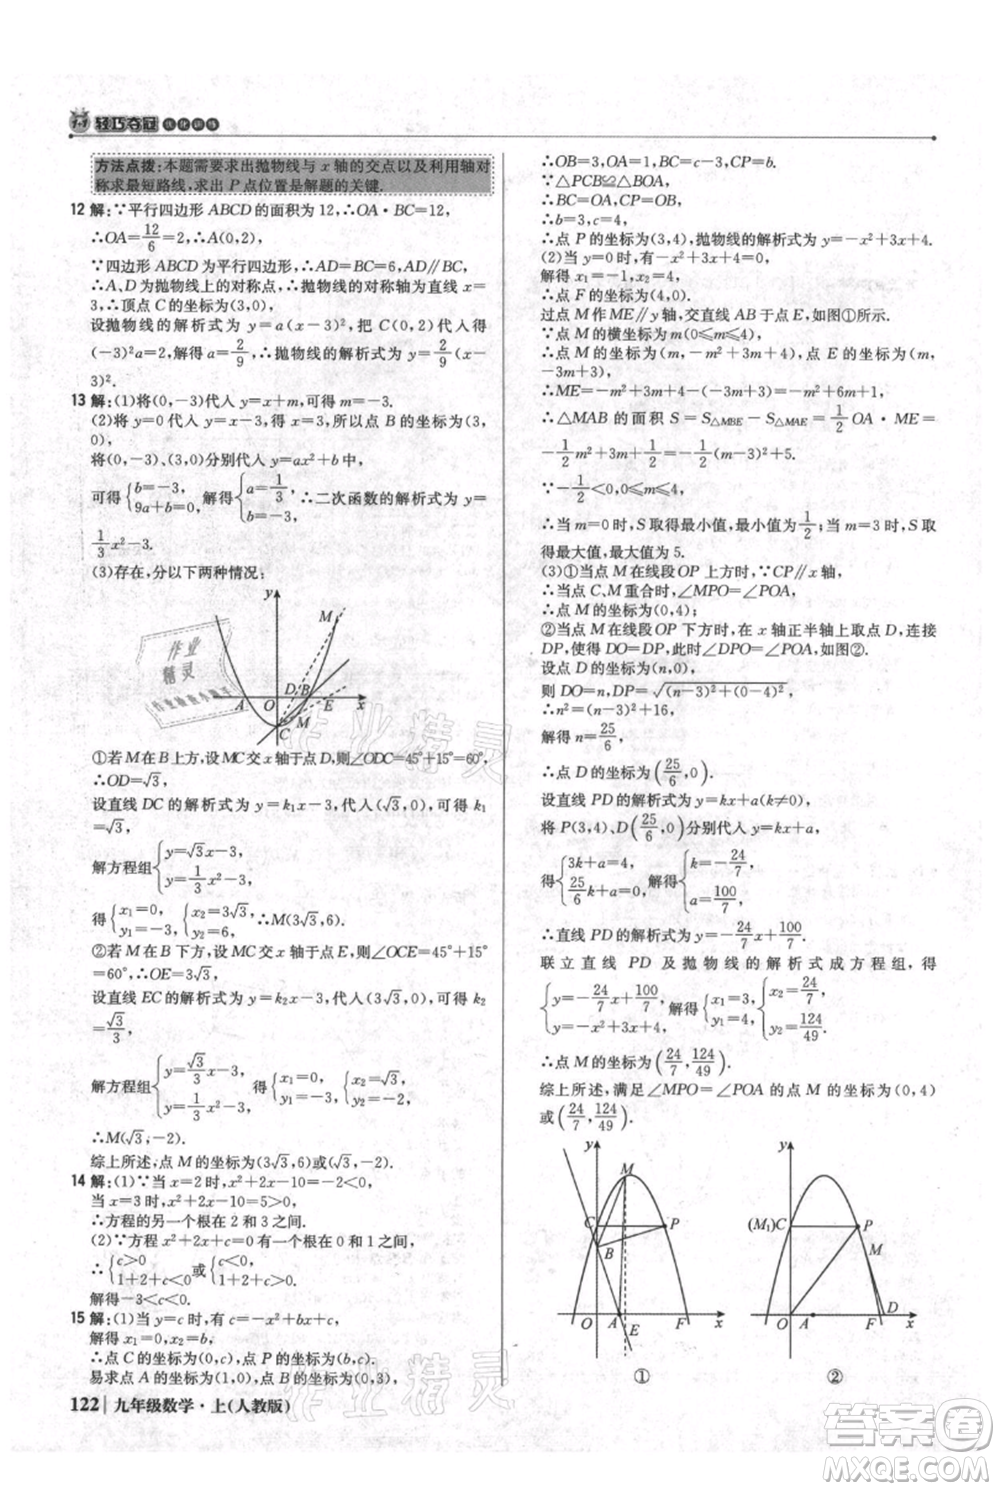 1+1 轻巧夺冠 优化训练
方法点拨:本题需要求出抛物线与 x 轴的交点以及利用轴对
称求最短路线,求出 P 点位置是解题的关键.
12 解:∵平行四边形 ABCD 的面积为 12,∴OA·BC=12,
∴OA=12/6=2,∴A(0,2),
∵四边形 ABCD 为平行四边形,∴AD=BC=6,AD∥BC,
∴A、D 为抛物线上的对称点,∴抛物线的对称轴为直线 x=
3,∴顶点 C 的坐标为(3,0),
设抛物线的解析式为 y=a(x-3)²,把 C(0,2)代入得
(-3)²a=2,解得 a=2/9,∴抛物线的解析式为 y=2/9(x-
3)².
13 解:(1)将(0,-3)代入 y=x+m,可得 m=-3.
(2)将 y=0 代入 y=x-3,得 x=3.所以点 B 的坐标为(3,
0),
将(0,-3),(3,0)分别代入 y=ax²+b 中,
可得{b=-3, 9a+b=0, 解得{a=1/3, b=-3, ∴二次函数的解析式为 y=
1/3x²-3.
(3)存在,分以下两种情况:
y
M
D B
A O E x
C M
①若 M 在 B 上方,设 MC 交 x 轴于点 D,则∠ODC=45°+15°=60°,
∴OD=√3,
设直线 DC 的解析式为 y=k₁x-3,代入(√3,0),可得 k₁
=√3,
解方程组{y=√3x-3, y=1/3x²-3,
得{x₁=0, y₁=-3, {x₂=3√3, y₂=6, ∴M(3√3,6).
②若 M 在 B 下方,设 MC 交 x 轴于点 E,则∠OCE=45°+15°
=60°,∴OE=3√3,
设直线 EC 的解析式为 y=k₂x-3,代入(3√3,0),可得 k₂
=√3/3,
解方程组{y=√3/3x-3, y=1/3x²-3, 得{x₁=0, y₁=-3, {x₂=√3, y₂=-2,
∴M(√3,-2).
综上所述,点 M 的坐标为(3√3,6)或(√3,-2).
14 解:(1)∵当 x=2 时,y<0,
当 x=3 时,y>0,
∴方程的另一个根在 2 和 3 之间.
(2)∵方程 x²-2x+c=0 有一个根在 0 和 1 之间,
∴{c>0, 1+2+c<0 或{c<0, 1+2+c>0.
解得-3<c<0.
15 解:(1)当 y=c 时,有 c=-x²+bx+c,
解得 x₁=0,x₂=b,
∴点 C 的坐标为(0,c),点 P 的坐标为(b,c).
易求点 A 的坐标为(1,0),点 B 的坐标为(0,3),
122 九年级数学·上(人教版)
∴OB=3,OA=1,BC=c-3,CP=b.
∵△PCB≌△BOA,
∴BC=OA,CP=OB,
∴b=3,c=4,
∴点 P 的坐标为(3,4),抛物线的解析式为 y=-x²+3x+4.
(2)当 y=0 时,有-x²+3x+4=0,
解得 x₁=-1,x₂=4,
∴点 F 的坐标为(4,0).
过点 M 作 ME∥y 轴,交直线 AB 于点 E,如图①所示.
∵点 M 的横坐标为 m(0≤m≤4),
∴点 M 的坐标为(m,-m²+3m+4),点 E 的坐标为(m,
-3m+3),
∴ME=-m²+3m+4-(-3m+3)=-m²+6m+1,
∴△MAB 的面积 S=S△MBE-S△MAE=1/2OA·ME=
-1/2m²+3m+1/2=-1/2(m-3)²+5.
∵-1/2<0,0≤m≤4,
∴当 m=0 时,S 取得最小值,最小值为1/2;当 m=3 时,S取
得最大值,最大值为 5.
(3)①当点 M 在线段OP 上方时,∵CP∥x 轴,
∴当点 C、M 重合时,∠MPO=∠POA,
∴点 M 的坐标为(0,4);
②当点 M 在线段OP 下方时,在 x 轴正半轴上取点 D,连接
DP,使得 DO=DP,此时∠DPO=∠POA,如图②.
设点 D 的坐标为(n,0),
则 DO=n,DP=√(n-3)²+(0-4)²,
∴n²=(n-3)²+16,
解得 n=25/6,
∴点 D 的坐标为(25/6,0).
设直线 PD 的解析式为 y=kx+a(k≠0),
将 P(3,4)、D(25/6,0)分别代入 y=kx+a,
得{3k+a=4, 25/6k+a=0, 解得{k=-24/7, a=100/7,
∴直线 PD 的解析式为 y=-24/7x+100/7.
联立直线 PD 及抛物线的解析式成方程组,得
{y=-24/7x+100/7, y=-x²+3x+4, 解得{x₁=3, y₁=4, {x₂=24/7, y₂=124/49.
∴点 M 的坐标为(24/7,124/49).
综上所述,满足∠MPO=∠POA 的点 M 的坐标为(0,4)
或(24/7,124/49).
y
M
C P
B
O A E F x
①
y
(M₁)C P
M
O A F D x
②
作业精灵
答案圈
MXQE.COM